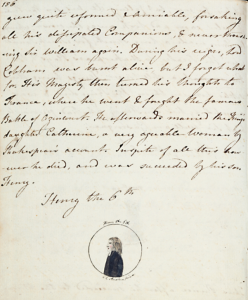 186
grew quite reformed & amiable, forsaking
all his dissipated Companions, & never thras-
ning Sir William again. During his reign, Lord
Cobham was burnt alive, but I forget what
for. His Majesty then turned his thoughts to
France, where he went & fought the famous
Battle of Agincourt. He afterwards married the King's
daughter Catherine, a very agreable Woman by
Shakespear's account. Inspite of all this how-
ever he died, and was succeeded by his son
Henry.
Henry the 6th